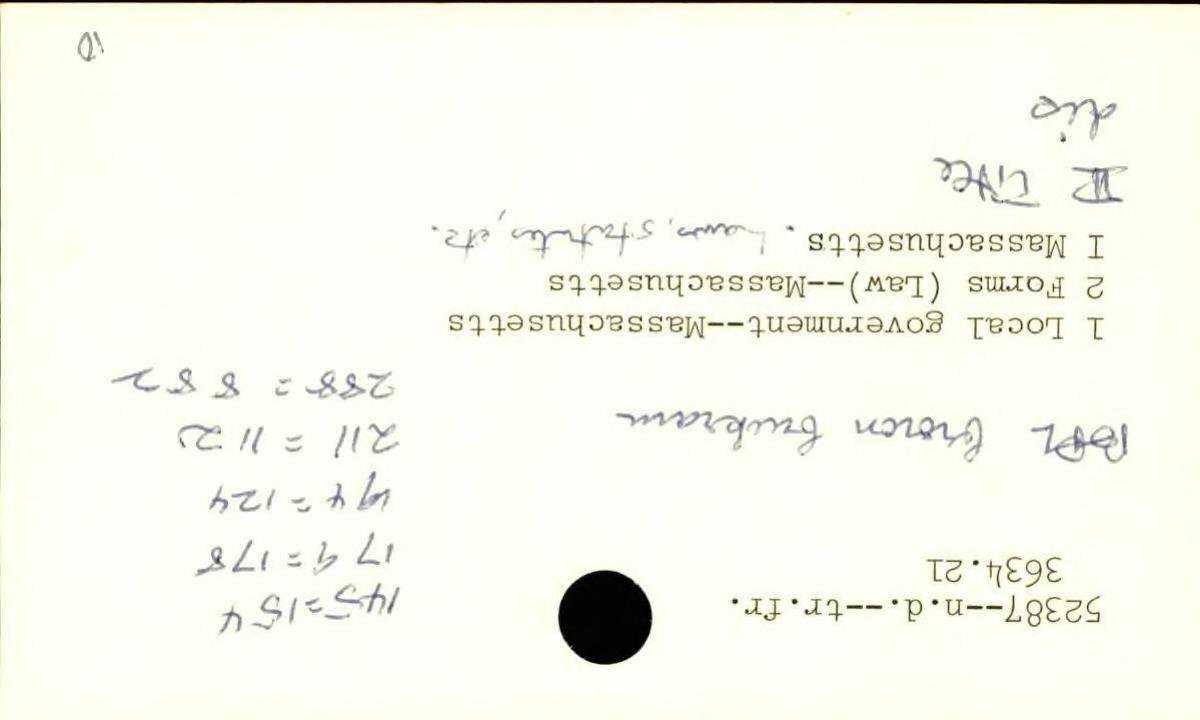 52387--n.d.--tr.fr.
3634.21
145=154
179=178
= 124
211 = 112
288 = 882
BPL brown buckram
1 Local government--Massachusetts
2 Forms (Law)--Massachusetts
I Massachusetts. Laws, statutes, etc.
II Title